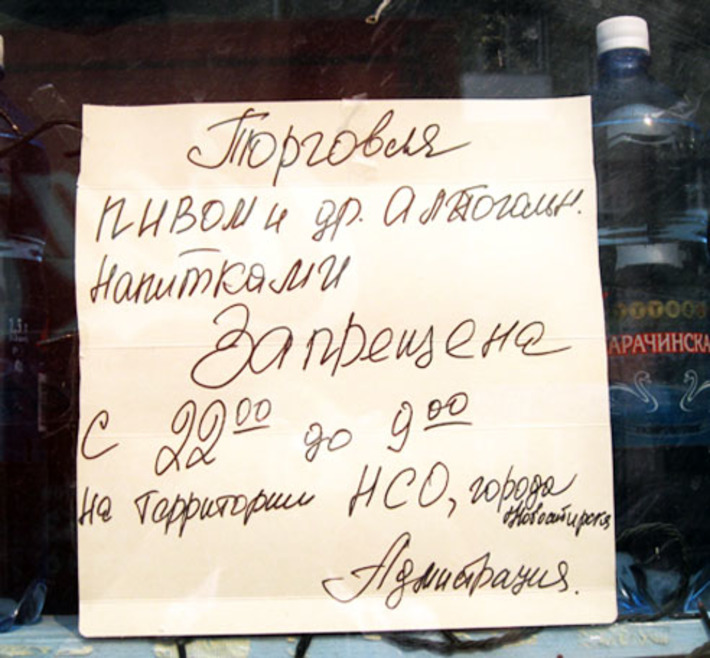 Торговля
пивом и др. Алкогольн.
напитками
Запрещена
с 22⁰⁰ до 9⁰⁰
на территории НСО, города
Новосибирска
Админстрация.
АРАЧИНСКА